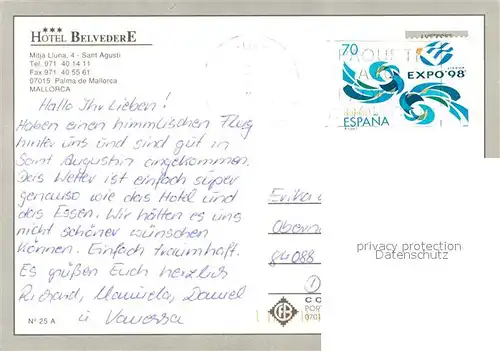 *** HOTEL BELVEDERE
Mitja Lluna, 4 - Sant Agusti
Tel. 971 40 14 11
Fax 971 40 55 61
07015 Palma de Mallorca
MALLORCA
Hallo Ihr Lieben!
Haben einen himmlischen Flug
hinter uns und sind gut in
Saint Augustin angekommen.
Das Wetter ist einfach super
genauso wie das Hotel und
das Essen. Wir hätten es uns
nicht schöner wünschen
können. Einfach traumhaft.
Es grüßen Euch herzlich
Richard, Manuela, Daniel
u Vanessa
Nº 25 A
70
EXPO'98
ESPAÑA
Erika
84088
privacy protection
Datenschutz